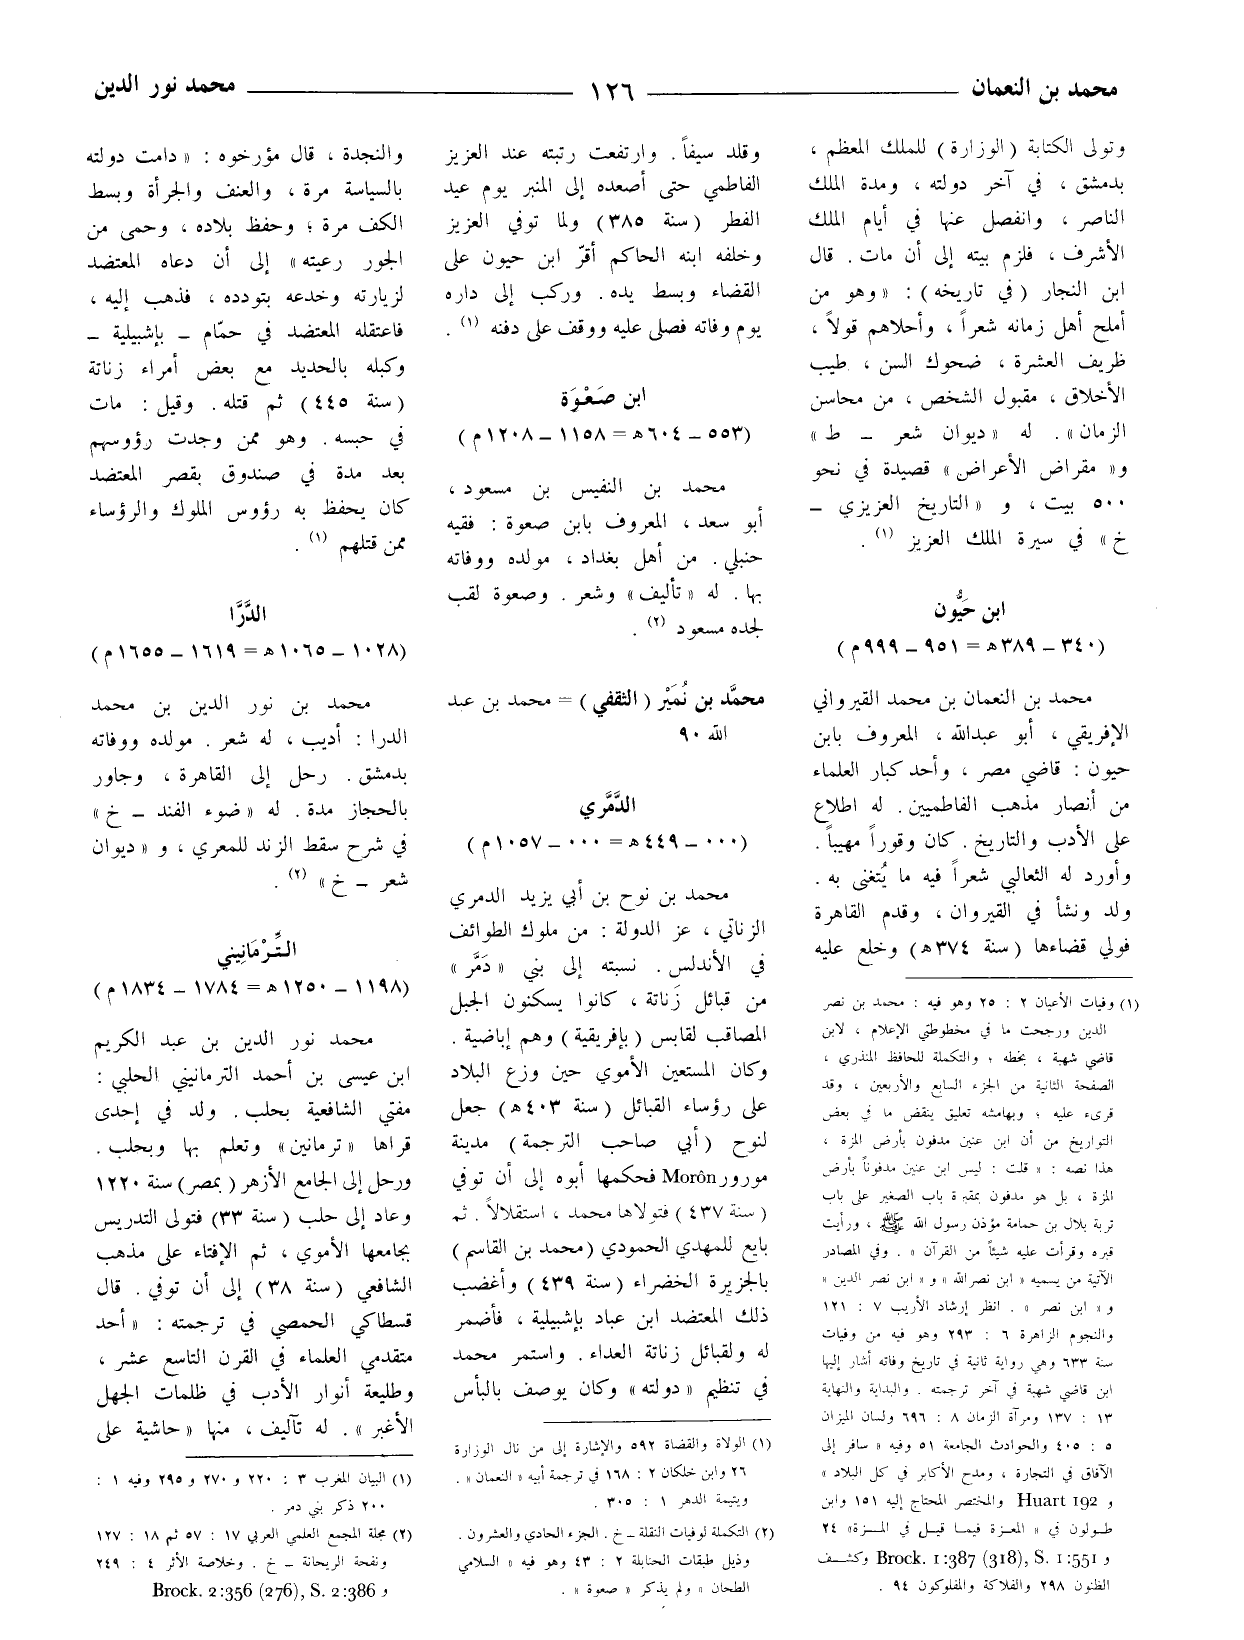 محمد بن النعمان ١٢٦ محمد نور الدين
وتولى الكتابة (الوزارة) للملك المعظم ،
بدمشق ، في آخر دولته ، ومدة الملك
الناصر ، وانفصل عنها في أيام الملك
الأشرف ، فلزم بيته إلى أن مات . قال
ابن النجار (في تاريخه) : «وهو من
أملح أهل زمانه شعراً ، وأحلاهم قولاً ،
ظريف العشرة ، ضحوك السن ، طيب
الأخلاق ، مقبول الشخص ، من محاسن
الزمان» . له «ديوان شعر ـ ط»
و« مقراض الأعراض» قصيدة في نحو
٥٠٠ بيت ، و «التاريخ العزيزي ـ
خ» في سيرة الملك العزيز (١) .
ابن حَيُّون
(٣٤٠ ـ ٣٨٩ه = ٩٥١ ـ ٩٩٩م)
محمد بن النعمان بن محمد القيرواني
الإفريقي ، أبو عبدالله ، المعروف بابن
حيون : قاضي مصر ، وأحد كبار العلماء
من أنصار مذهب الفاطميين . له اطلاع
على الأدب والتاريخ . كان وقوراً مهيباً .
وأورد له الثعالبي شعراً فيه ما يُتغنى به .
ولد ونشأ في القيروان ، وقدم القاهرة
فولي قضاءها (سنة ٣٧٤ه) وخلع عليه
(١) وفيات الأعيان ٢ : ٢٥ وهو فيه : محمد بن نصر
الدين ورجحت ما في مخطوطتي الإعلام ، لابن
قاضي شهبة ، بخطه ؛ والتكملة للحافظ المنذري ،
الصفحة الثانية من الجزء السابع والأربعين ، وقد
قرىء عليه ؛ وبهامشه تعليق ينقض ما في بعض
التواريخ من أن ابن عنين مدفون بأرض المزة ،
هذا نصه : « قلت : ليس ابن عنين مدفوناً بأرض
المزة ، بل هو مدفون بمقبرة باب الصغير على باب
تربة بلال بن حمامة مؤذن رسول الله ﷺ ، ورأيت
قبره وقرأت عليه شيئاً من القرآن » . وفي المصادر
الآتية من يسميه « ابن نصرالله » و« ابن نصر الدين »
و« ابن نصر » . انظر إرشاد الأريب ٧ : ١٢١
والنجوم الزاهرة ٦ : ٢٩٣ وهو فيه من وفيات
سنة ٦٣٣ وهي رواية ثانية في تاريخ وفاته أشار إليها
ابن قاضي شهبة في آخر ترجمته . والبداية والنهاية
١٣ : ١٣٧ ومرآة الزمان ٨ : ٦٩٦ ولسان الميزان
٥ : ٤٠٥ والحوادث الجامعة ٥١ وفيه « سافر إلى
الآفاق في التجارة ، ومدح الأكابر في كل البلاد »
و Huart 192 والمختصر المحتاج إليه ١٥١ وابن
طولون في « المعزة فيما قيل في المزة» ٢٤
و Brock. 1:387 (318), S. 1:551 وكشف
الظنون ٢٩٨ والفلاكة والمفلوكون ٩٤ .
وقلد سيفاً . وارتفعت رتبته عند العزيز
الفاطمي حتى أصعده إلى المنبر يوم عيد
الفطر (سنة ٣٨٥) ولما توفي العزيز
وخلفه ابنه الحاكم أقرّ ابن حيون على
القضاء وبسط يده . وركب إلى داره
يوم وفاته فصلى عليه ووقف على دفنه (١) .
ابن صَعْوَة
(٥٥٣ ـ ٦٠٤ه = ١١٥٨ ـ ١٢٠٨م)
محمد بن النفيس بن مسعود ،
أبو سعد ، المعروف بابن صعوة : فقيه
حنبلي . من أهل بغداد ، مولده ووفاته
بها . له «تأليف» وشعر . وصعوة لقب
لجده مسعود (٢) .
محمَّد بن نُمَيْر (الثقفي) = محمد بن عبد
الله ٩٠
الدَّمَّري
(٠٠٠ ـ ٤٤٩ه = ٠٠٠ ـ ١٠٥٧م)
محمد بن نوح بن أبي يزيد الدمري
الزناتي ، عز الدولة : من ملوك الطوائف
في الأندلس . نسبته إلى بني «دَمَّر»
من قبائل زَناتة ، كانوا يسكنون الجبل
المصاقب لقابس (بإفريقية) وهم إباضية .
وكان المستعين الأموي حين وزع البلاد
على رؤساء القبائل (سنة ٤٠٣ه) جعل
لنوح (أبي صاحب الترجمة) مدينة
مورور Morôn فحكمها أبوه إلى أن توفي
(سنة ٤٣٧) فتولاها محمد ، استقلالاً . ثم
بايع للمهدي الحمودي (محمد بن القاسم)
بالجزيرة الخضراء (سنة ٤٣٩) وأغضب
ذلك المعتضد ابن عباد بإشبيلية ، فأضمر
له ولقبائل زناتة العداء . واستمر محمد
في تنظيم «دولته» وكان يوصف بالبأس
(١) الولاة والقضاة ٥٩٢ والإشارة إلى من نال الوزارة
٢٦ وابن خلكان ٢ : ١٦٨ في ترجمة أبيه « النعمان » .
ويتيمة الدهر ١ : ٣٠٥ .
(٢) التكملة لوفيات النقلة ـ خ . الجزء الحادي والعشرون .
وذيل طبقات الحنابلة ٢ : ٤٣ وهو فيه « السلامي
الطحان » ولم يذكر « صعوة » .
والنجدة ، قال مؤرخوه : «دامت دولته
بالسياسة مرة ، والعنف والجرأة وبسط
الكف مرة ؛ وحفظ بلاده ، وحمى من
الجور رعيته» إلى أن دعاه المعتضد
لزيارته وخدعه بتودده ، فذهب إليه ،
فاعتقله المعتضد في حمّام ـ بإشبيلية ـ
وكبله بالحديد مع بعض أمراء زناتة
(سنة ٤٤٥) ثم قتله . وقيل : مات
في حبسه . وهو ممن وجدت رؤوسهم
بعد مدة في صندوق بقصر المعتضد
كان يحفظ به رؤوس الملوك والرؤساء
ممن قتلهم (١) .
الدَّرَّا
(١٠٢٨ ـ ١٠٦٥ه = ١٦١٩ ـ ١٦٥٥م)
محمد بن نور الدين بن محمد
الدرا : أديب ، له شعر . مولده ووفاته
بدمشق . رحل إلى القاهرة ، وجاور
بالحجاز مدة . له «ضوء الفند ـ خ»
في شرح سقط الزند للمعري ، و «ديوان
شعر ـ خ» (٢) .
التِّرْمَانِيني
(١١٩٨ ـ ١٢٥٠ه = ١٧٨٤ ـ ١٨٣٤م)
محمد نور الدين بن عبد الكريم
ابن عيسى بن أحمد الترمانيني الحلبي :
مفتي الشافعية بحلب . ولد في إحدى
قراها «ترمانين» وتعلم بها وبحلب .
ورحل إلى الجامع الأزهر (بمصر) سنة ١٢٢٠
وعاد إلى حلب (سنة ٣٣) فتولى التدريس
بجامعها الأموي ، ثم الإفتاء على مذهب
الشافعي (سنة ٣٨) إلى أن توفي . قال
قسطاكي الحمصي في ترجمته : «أحد
متقدمي العلماء في القرن التاسع عشر ،
وطليعة أنوار الأدب في ظلمات الجهل
الأغبر» . له تآليف ، منها «حاشية على
(١) البيان المغرب ٣ : ٢٢٠ و ٢٧٠ و ٢٩٥ وفيه ١ :
٢٠٠ ذكر بني دمر .
(٢) مجلة المجمع العلمي العربي ١٧ : ٥٧ ثم ١٨ : ١٢٧
ونفحة الريحانة ـ خ . وخلاصة الأثر ٤ : ٢٤٩
و Brock. 2:356 (276), S. 2:386